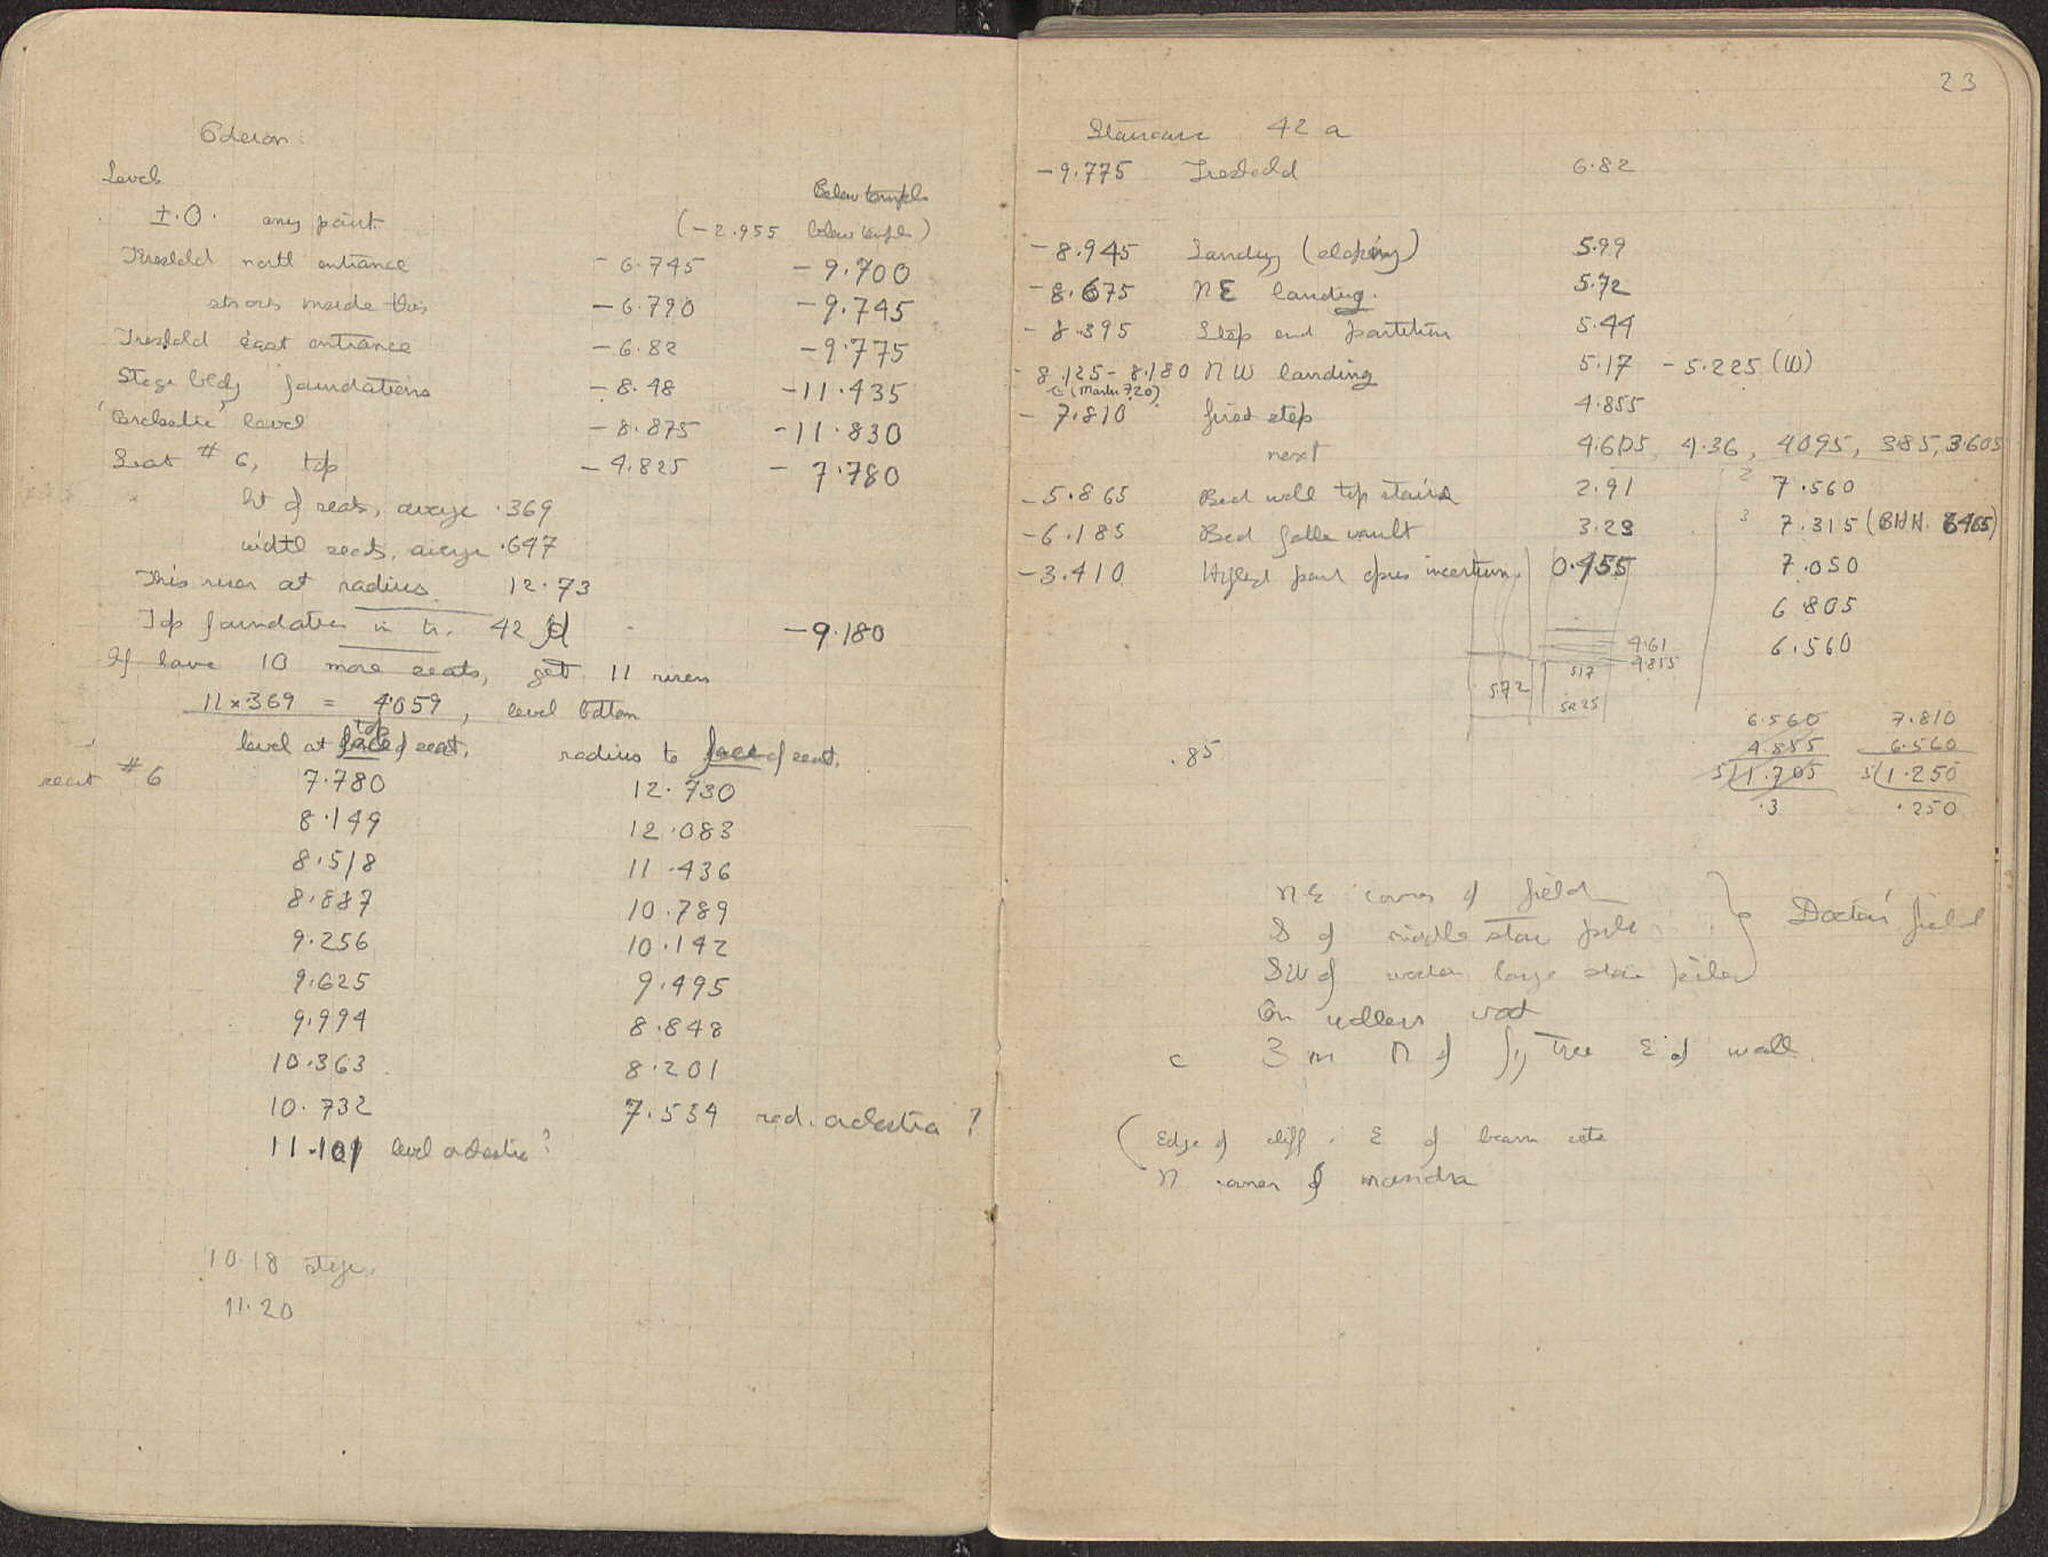 Odeion:
Levels
Below temple
±.0. any point. (-2.955 below temple)
Threshold north entrance -6.745 -9.700
stones inside this -6.790 -9.745
Threshold East entrance -6.82 -9.775
Stage bldg foundations -8.48 -11.435
'Orchestra' level -8.875 -11.830
Seat #6, top -4.825 -7.780
ht of seats, average .369
width seats, average .647
This riser at radius 12.73
Top foundation in tr. 42 d -9.180
If have 10 more seats, get 11 risers
11 x .369 = 4.059, level bottom
top
level at face of seat. radius to face of seat.
seat #6 7.780 12.730
8.149 12.083
8.518 11.436
8.887 10.789
9.256 10.142
9.625 9.495
9.994 8.848
10.363 8.201
10.732 7.554 rad. orchestra ?
11.101 level orchestra ?
10.18 stage
11.20
23
Staircase 42 a
-9.775 Treshold 6.82
-8.945 Landing (sloping) 5.99
-8.675 NE landing. 5.72
-8.395 Step and partition 5.44
-8.125-8.180 NW landing 5.17 - 5.225 (W)
-7.810 first step 4.855
next 4.605, 4.36, 4.095, 3.85, 3.605
-5.865 Bed wall top stairs 2.91 2 7.560
-6.185 Bed fallen vault 3.23 3 7.315 (BHH.
-3.410 Highest part opus incertum 0.455 7.050
6.805
4.61
4.855
6.560
5.72 5.17
5.225
6.560 7.810
4.855 6.560
5/1.705 5/1.250
.3 .250
.85
NE corner of field
S of middle stone pile
SW of large stone pile
Doctors' field
On
c 3 m N of fig tree E of wall.
(Edge of cliff. E of
N corner of mandra